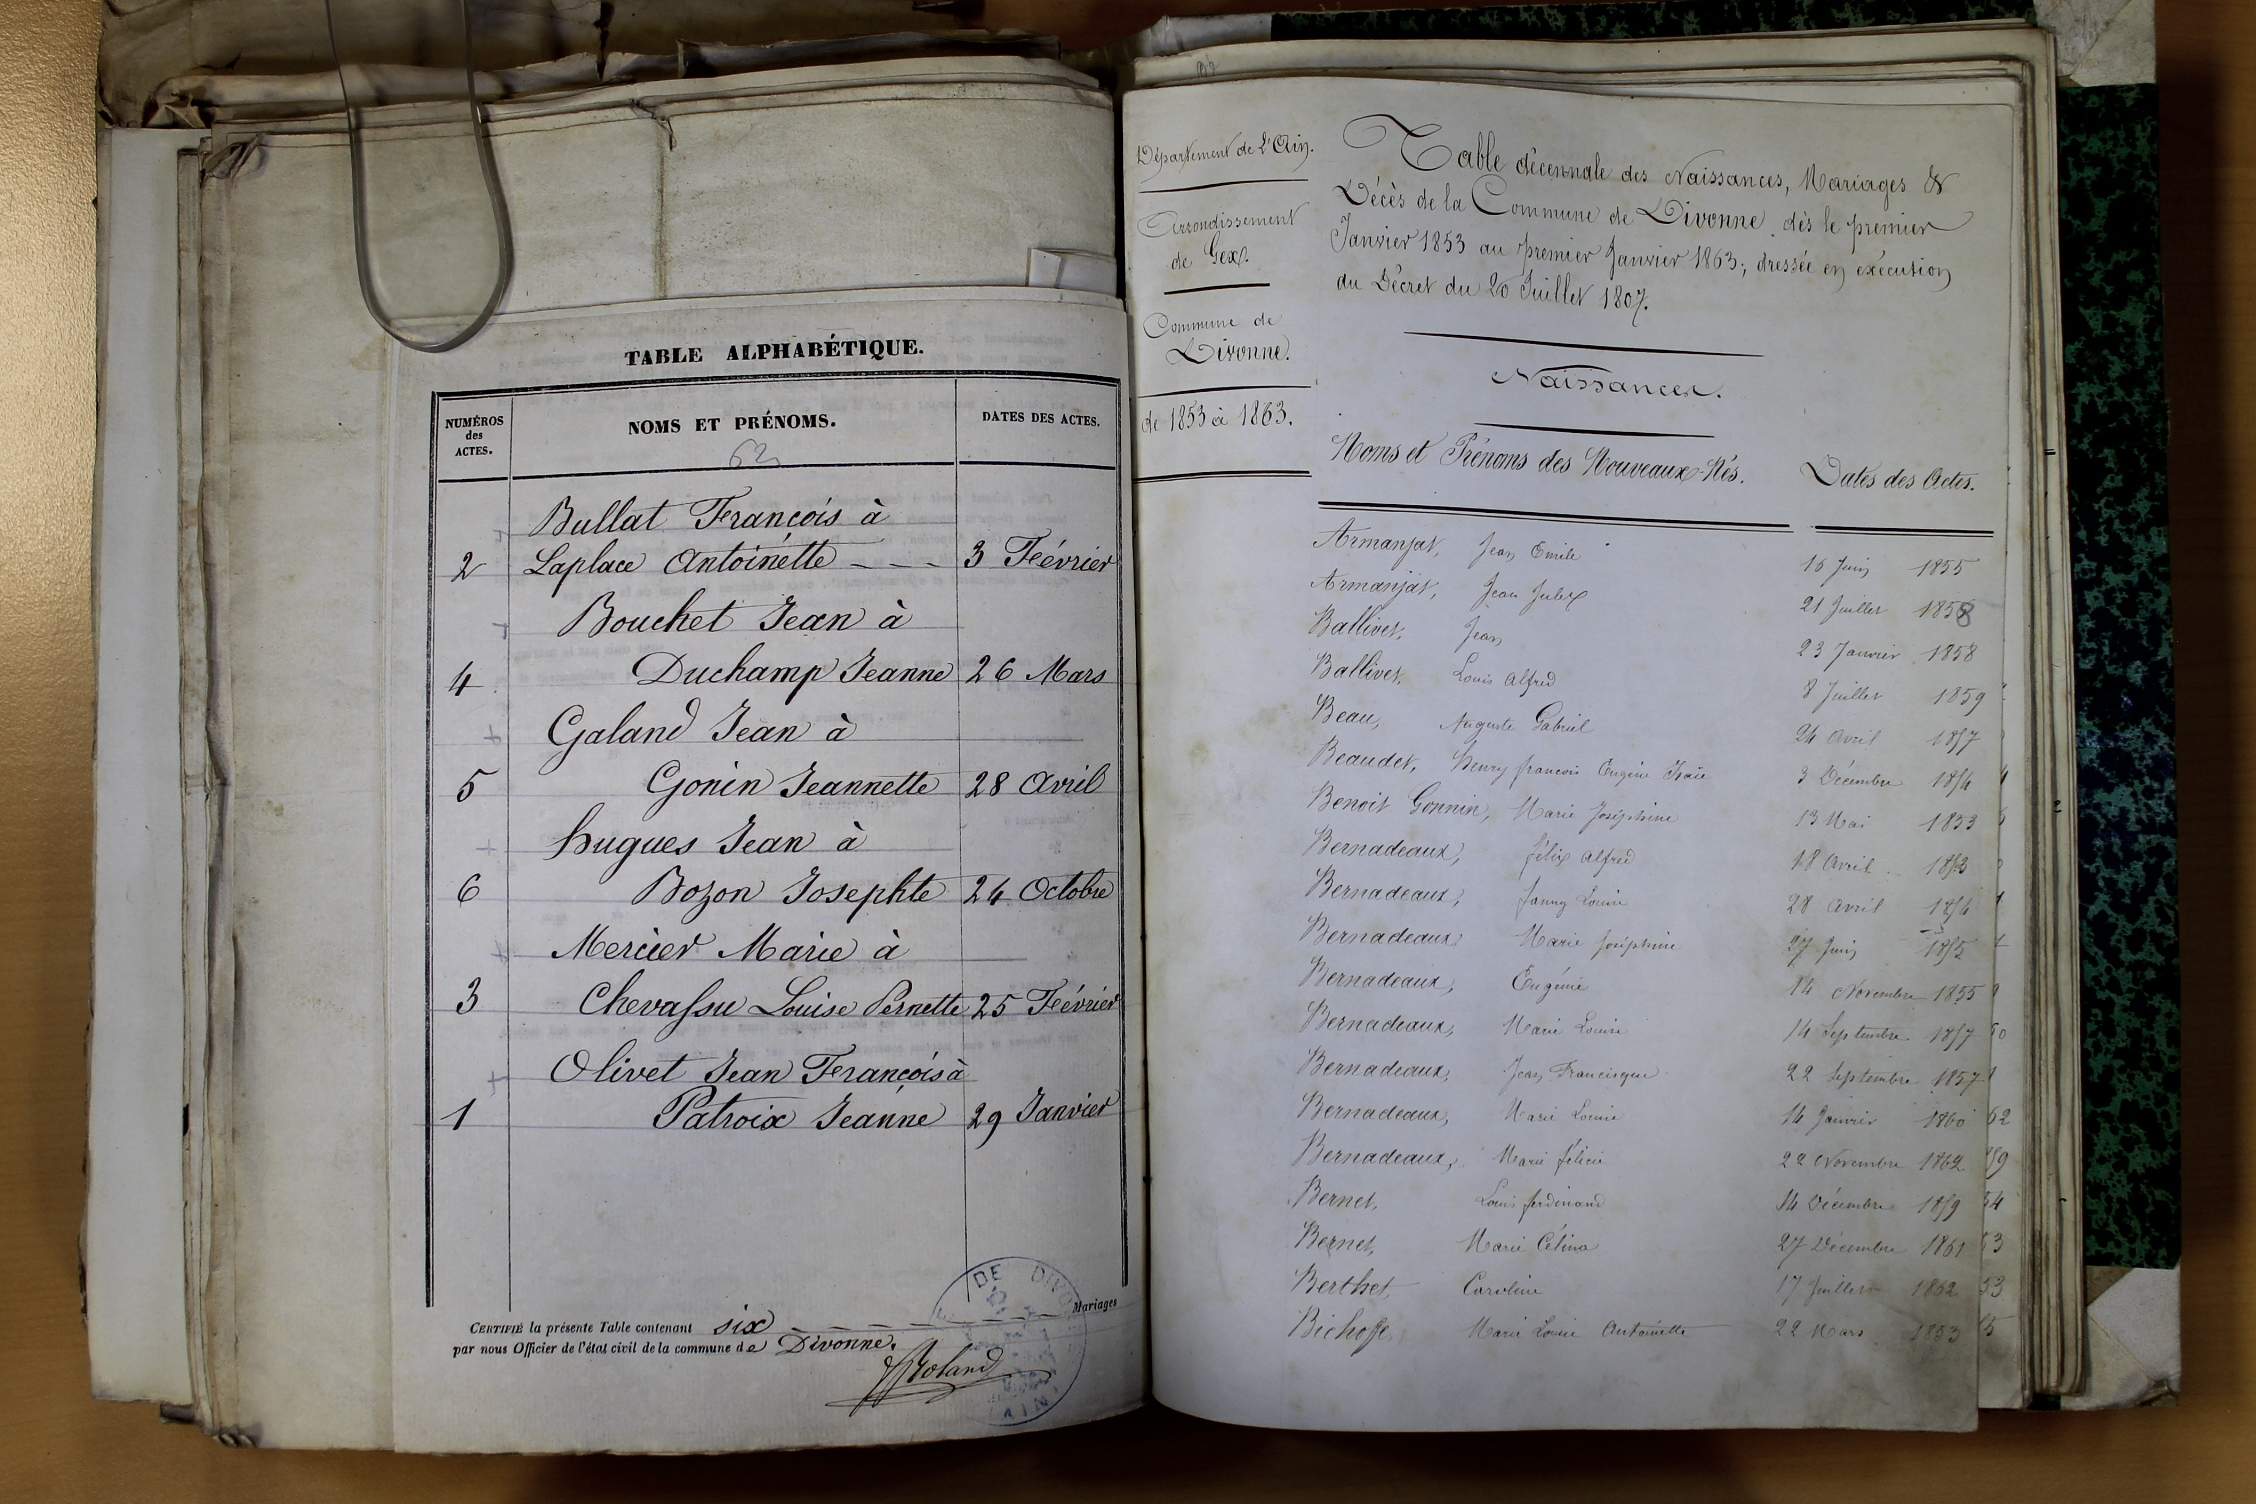 TABLE ALPHABÉTIQUE.
NUMÉROS des ACTES.
NOMS ET PRÉNOMS.
DATES DES ACTES.
62
Bullat François à
2 Laplace Antoinette - - - 3 Février
Bouchet Jean à
4 Duchamp Jeanne 26 Mars
Galand Jean à
5 Gonin Jeannette 28 Avril
Hugues Jean à
6 Bozon Josephte 24 Octobre
Mercier Marie à
3 Chevassu Louise Pernette 25 Février
Olivet Jean François à
1 Patroix Jeanne 29 Janvier
CERTIFIÉ la présente Table contenant six Mariages
par nous Officier de l'état civil de la commune de Divonne.
Roland
DE DIVONNE
AIN
Département de L'Ain.
Arrondissement
de Gex.
Commune de
Divonne.
de 1853 à 1863.
Table décennale des Naissances, Mariages &
Décès de la Commune de Divonne, dès le premier
Janvier 1853 au premier Janvier 1863; dressée en exécution
du Décret du 20 Juillet 1807.
Naissances.
Noms et Prénoms des Nouveaux-Nés. Dates des Actes.
Armanjat, Jean Emile 15 Juin 1855
Armanjat, Jean Jules 21 Juillet 1858
Ballivet, Jean 23 Janvier 1858
Ballivet, Louis Alfred 8 Juillet 1859
Beau, Auguste Gabriel 24 Avril 1857
Beaudet, Henry françois Eugène Isaïe 3 Décembre 1854
Benoit Gonnin, Marie Joséphine 13 Mai 1853
Bernadeaux, félix Alfred 18 Avril 1853
Bernadeaux, fanny Louise 28 Avril 1854
Bernadeaux, Marie Joséphine 27 Juin 1855
Bernadeaux, Eugénie 14 Novembre 1855
Bernadeaux, Marie Louise 14 Septembre 1857
Bernadeaux, Jean Francisque 22 Septembre 1857
Bernadeaux, Marie Louise 14 Janvier 1860
Bernadeaux, Marie félicie 22 Novembre 1862
Bernet, Louis ferdinand 14 Décembre 1859
Bernet, Marie Célina 27 Décembre 1861
Berthet, Caroline 17 Juillet 1862
Bichoff, Marie Louise Antoinette 22 Mars 1853